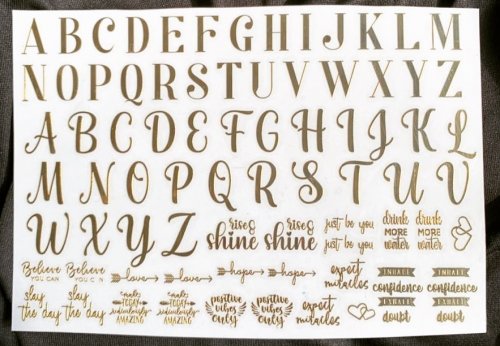 A B C D E F G H I J K L M
N O P Q R S T U V W X Y Z
A B C D E F G H I J K L
M N O P Q R S T U V
W X Y Z
rise & shine
rise & shine
just be you
just be you
drink MORE water
drink MORE water
Believe YOU CAN
Believe YOU C N
love
love
hope
hope
expect miracles
INHALE confidence EXHALE doubt
INHALE confidence EXHALE doubt
slay the day
slay the day
make TODAY ridiculously AMAZING
make TODAY ridiculously AMAZING
positive vibes only
positive vibes only
expect miracles